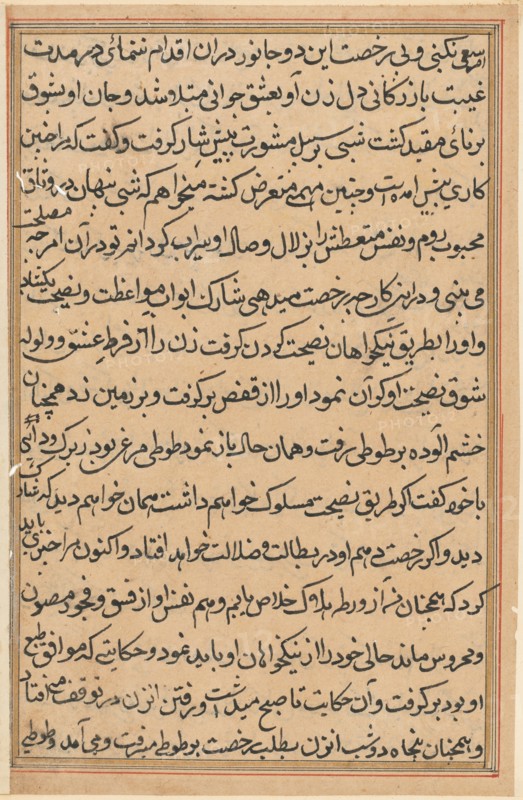 امری سعی نکنی و بی رخصت این دو جانور دران اقدام ننمائی در مدت
غیبت بازرگانی دل زن او بعشق جوانی مبتلا شد و جان او بشوق
برنائ مقید کشت شبی بر سبیل مشورت پیش شارک رفت و کفت که مرا چنین
کاری پیش امده است و چنین مهمی متعرض کشته میخواهم که شبی پنهان در وثاق
محبوب روم و نفس متعطش را بزلال وصال او سیراب کردانم تو در آن امر چه مصلحت
می بینی و دراین کار چه رخصت میدهی شارک ابواب مواعظت و نصیحت بکشاد
و اورا بطریق نیکخواهان نصیحت کردن کرفت زن را از فرط عشق و ولوله
شوق نصیحت او کران نمود اورا از قفص برکرفت و بر زمین زد همچنان
خشم آلوده بر طوطی رفت و همان حال باز نمود طوطی مرغی بود زیرک و دانی
باخود کفت اکر طریق نصیحت مسلوک خواهم داشت همان خواهم دید که شارک
دید و اکر رخصت دهم او در بطالت و ضلالت خواهد افتاد و اکنون مرا چیزی باید
کرد که همچنان من از ورطه هلاک خلاص یابم و هم نفس او از فسق و فجور مصون
و محروس ماند حالی خود را از نیکخواهان او باید نمود و حکایتی که موافق طبع
او بود برکرفت و آن حکایت تا صبح میداشت و رفتن انزن در توقف می افتاد
و همچنان پنجاه دو شب انزن بطلب رخصت بر طوطی میرفت و می آمد و طوطی